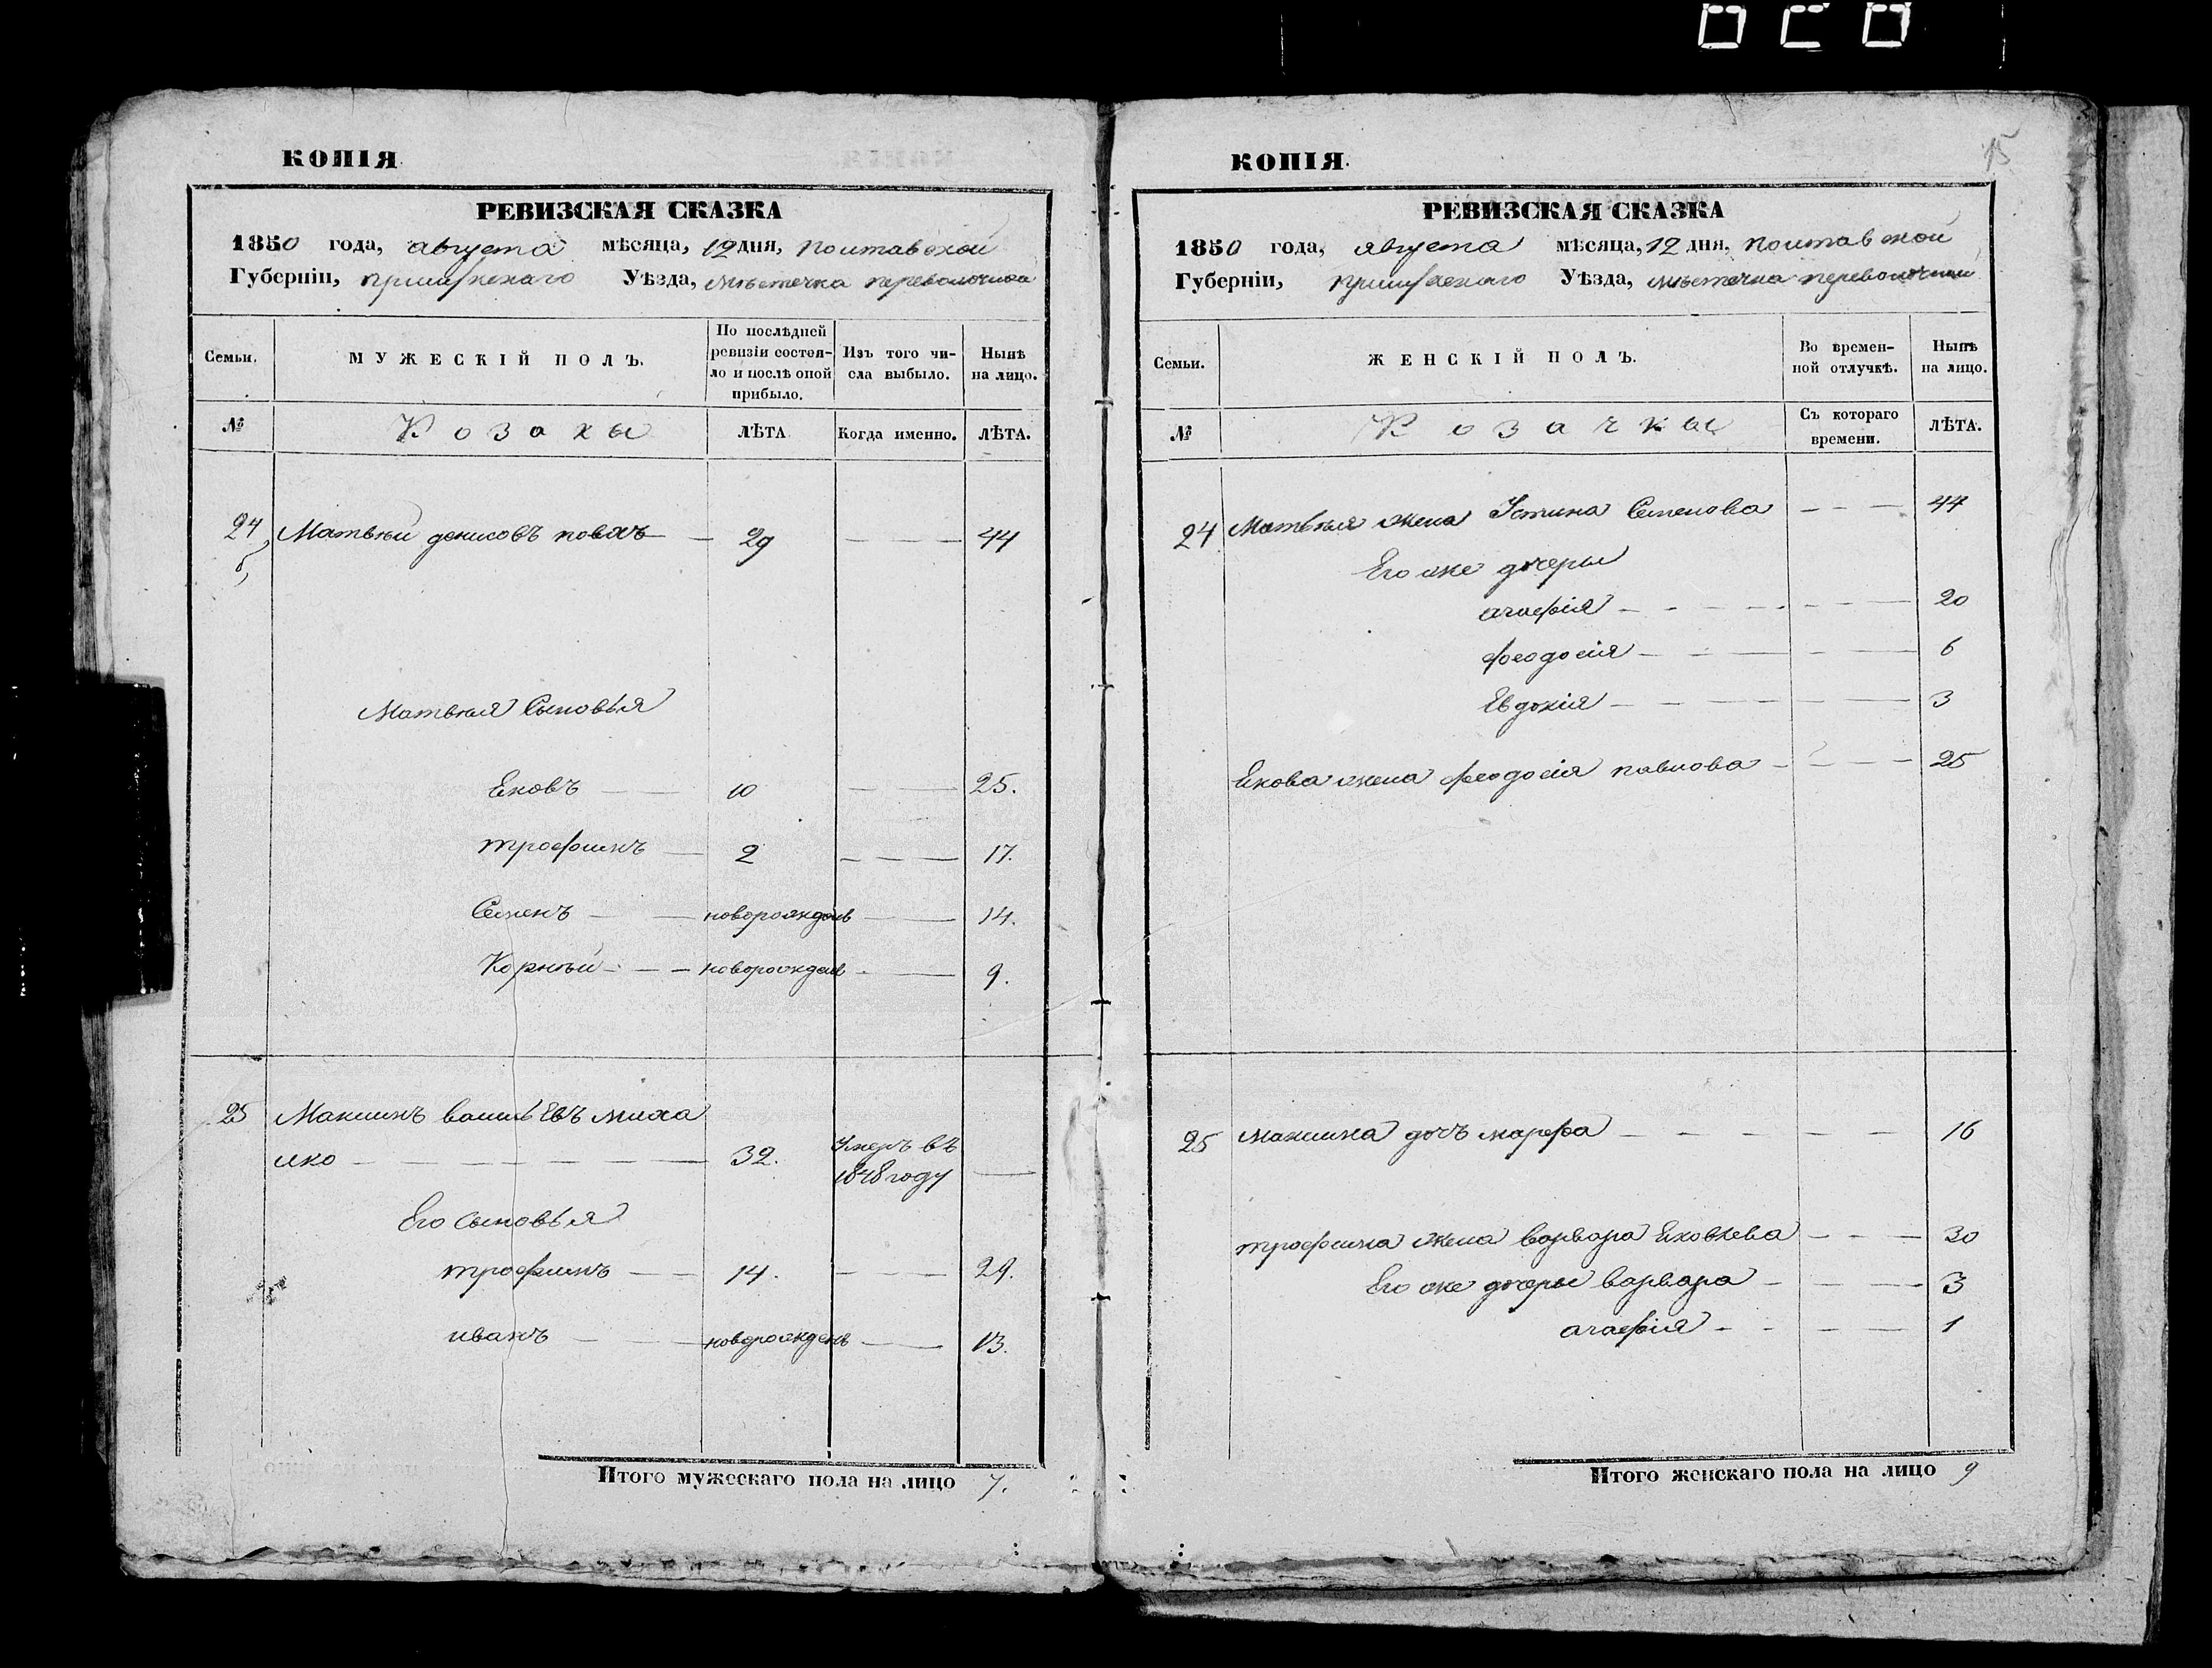 КОПІЯ
РЕВИЗСКАЯ СКАЗКА
1850 года, августа мѣсяца, 12 дня, полтавской
Губерніи, Уѣзда, мѣстечка переволочной
Семьи. МУЖЕСКІЙ ПОЛЪ. По послѣдней ревизіи состояло и послѣ оной прибыло. Изъ того числа выбыло. Нынѣ на лицо.
№ Козаки ЛѢТА Когда именно. ЛѢТА.
24 Матвѣй денисовъ 29 — — — 44
Матвѣя Сыновья
Яковъ — — 10 — — 25.
трофимъ — 2 — — — 17.
Семенъ — — новорожденъ — 14.
Корнѣй — — новорожденъ — 9.
25 Максимъ васильевъ миха
лко — — — — — — 32. Умеръ въ
1848 году —
Его сыновья
трофимъ — — 14. — — — 29.
иванъ — — новорожденъ — 13.
Итого мужескаго пола на лицо 7.
15
КОПІЯ.
РЕВИЗСКАЯ СКАЗКА
1850 года, августа мѣсяца, 12 дня, полтавской
Губерніи, Уѣзда, мѣстечка переволочной
Семьи. ЖЕНСКІЙ ПОЛЪ. Во временной отлучкѣ. Нынѣ на лицо.
№ Козачки Съ котораго времени. ЛѢТА.
24 Матвѣя жена Устина Семенова — — — 44
Его же дочеры
агафія — — — — — — — 20
феодосія — — — — — 6
Евдокія — — — — — 3
Якова жена феодосія павлова — — — — 25
25 максима дочъ марфа — — — — — — 16
трофима жена варвара Яковлева — — — 30
Его же дочеры варвара — — — 3
агафія — — — — 1
Итого женскаго пола на лицо 9